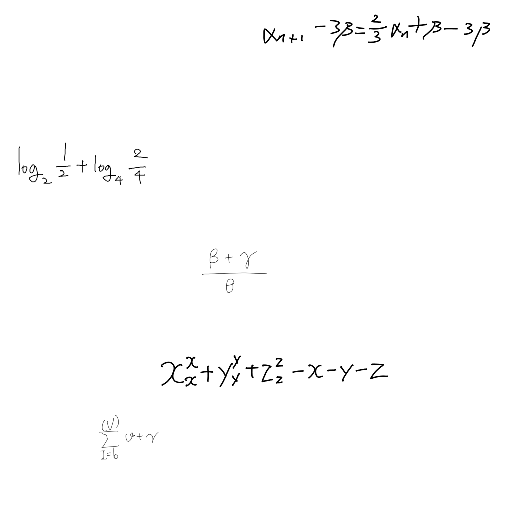 α_{n+1} - 3β = \frac{2}{3} α_n + β - 3β
log_2 \frac{1}{2} + log_4 \frac{2}{4}
\frac{β + γ}{θ}
x_x^x + y_y^y + z_z^z - x - y - z
\sum_{I=b}^{(V)} v + γ